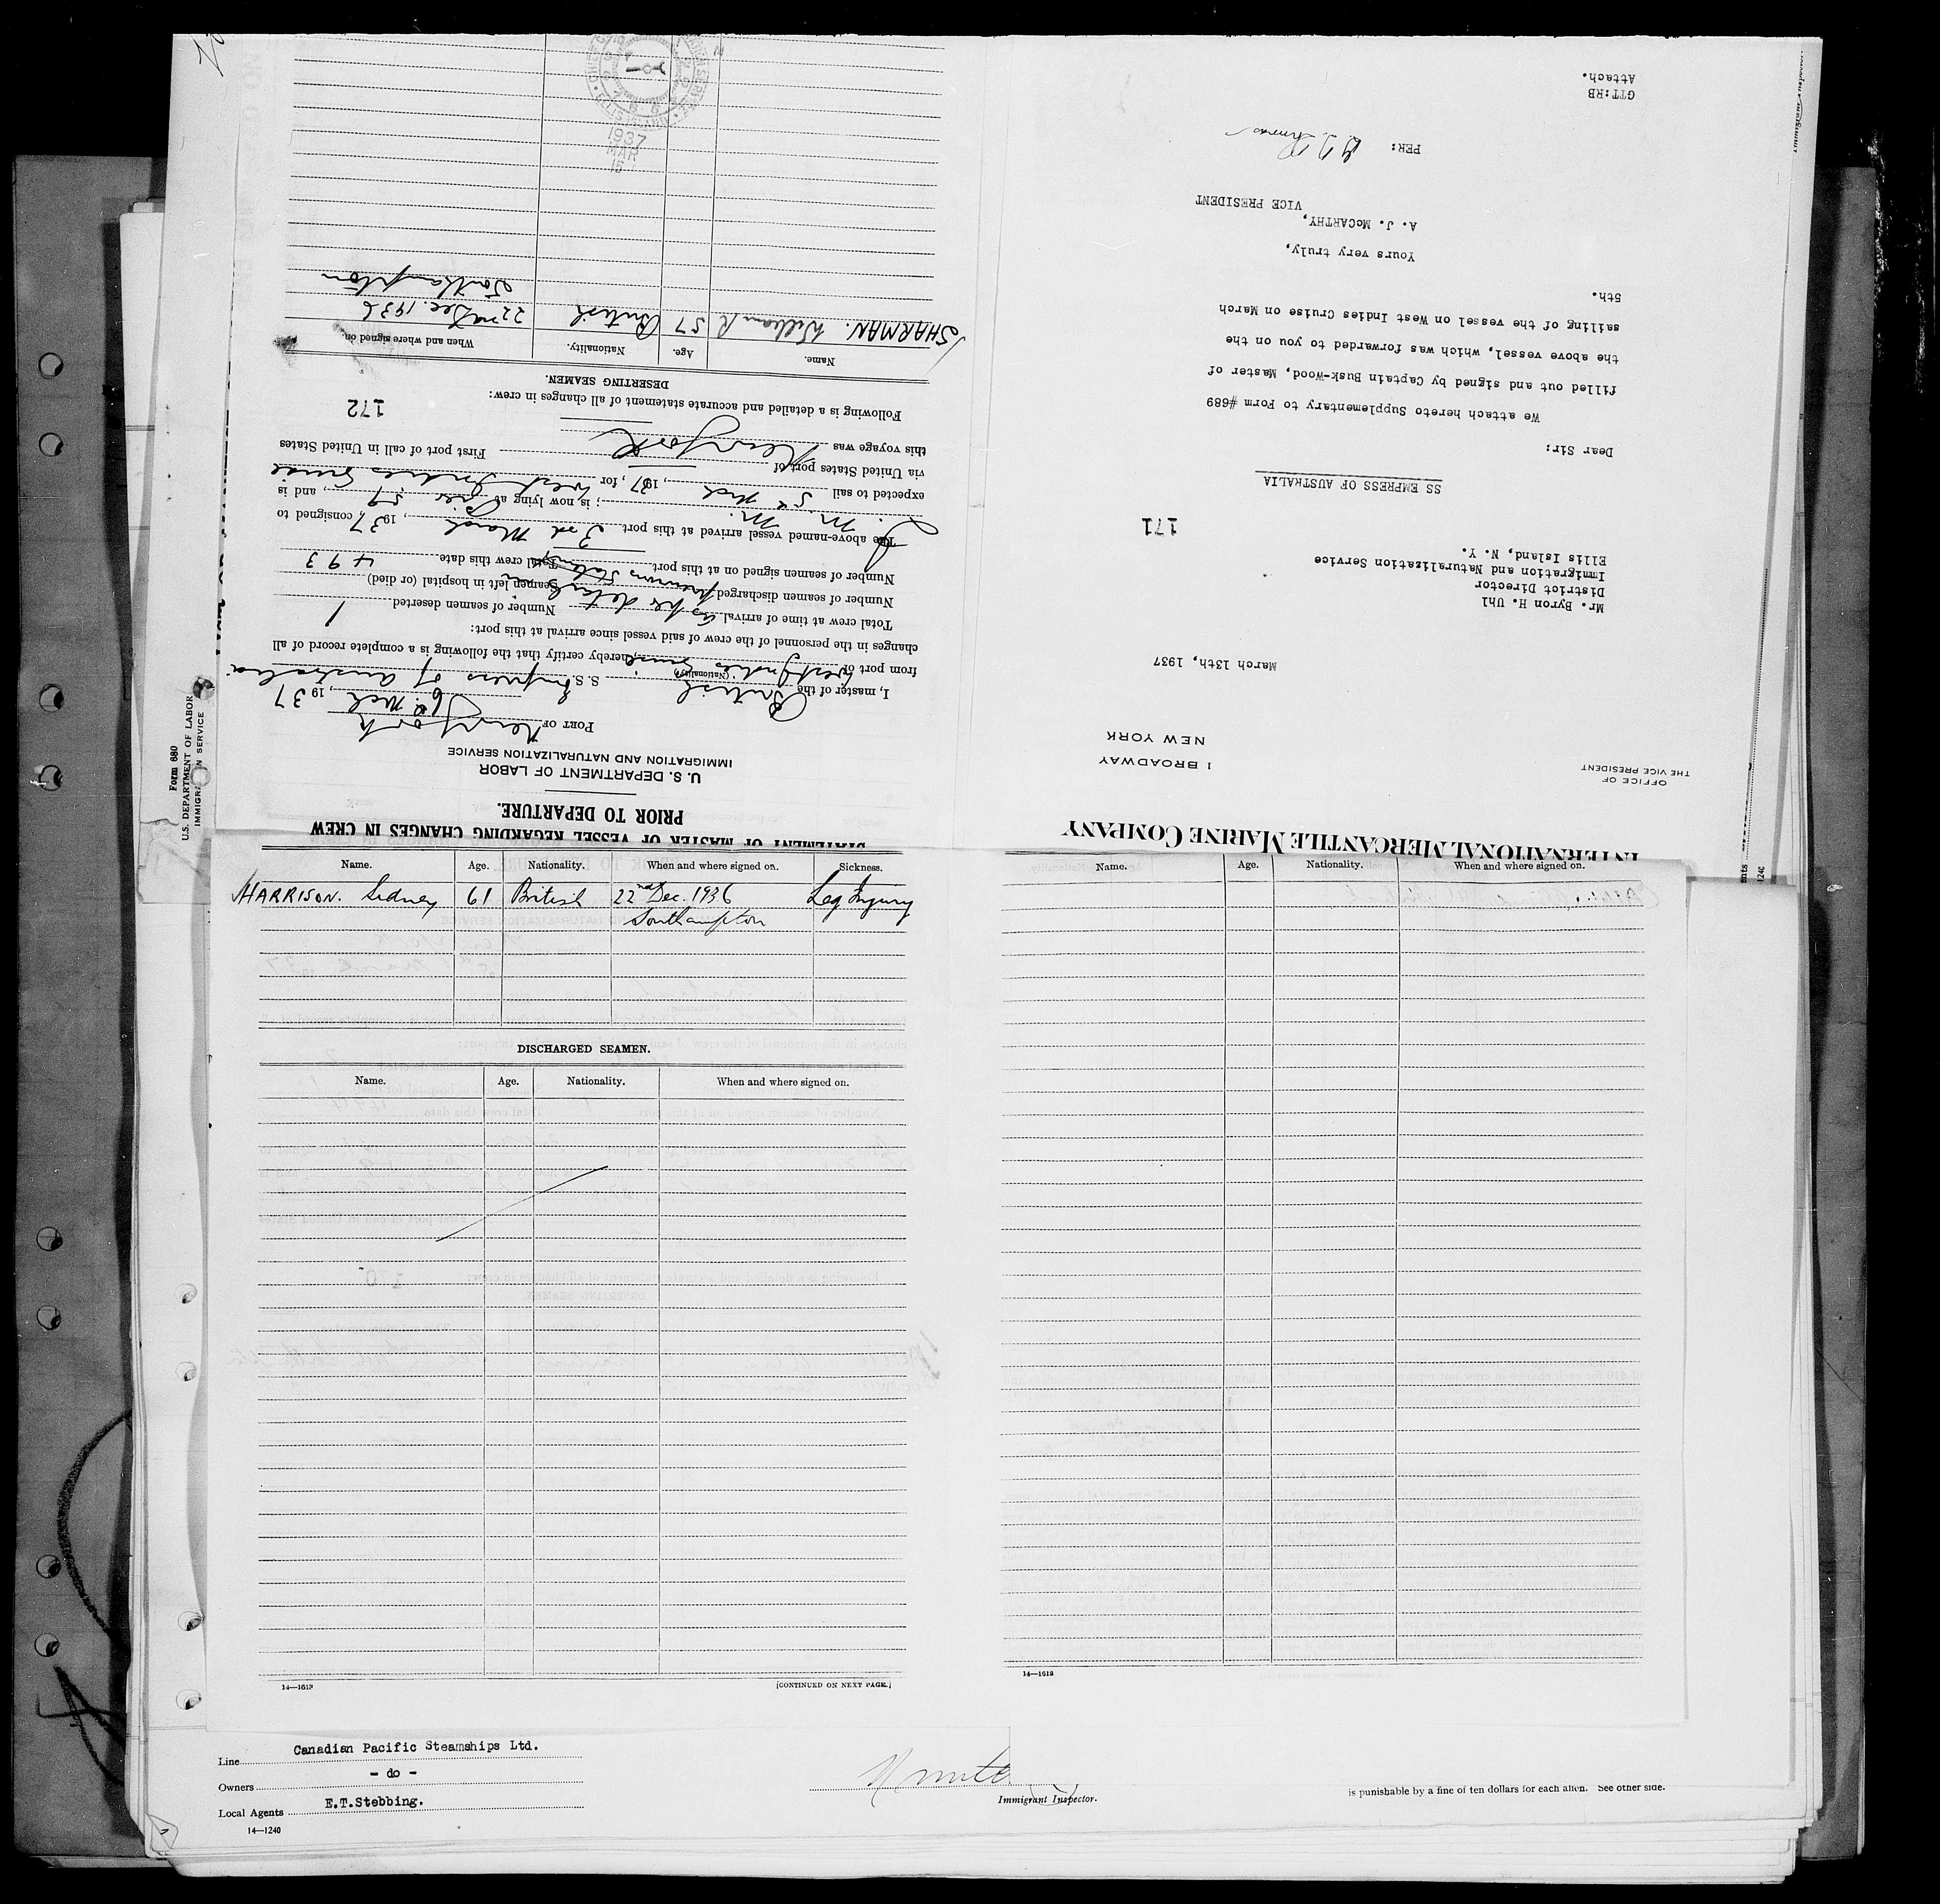 INTERNATIONAL MERCANTILE MARINE COMPANY
OFFICE OF
THE VICE PRESIDENT
1 BROADWAY
NEW YORK
March 13th, 1937
Mr. Byron H. Uhl
District Director
Immigration and Naturalization Service
Ellis Island, N. Y.
171
SS EMPRESS OF AUSTRALIA
Dear Sir:
We attach hereto Supplementary to Form #689
filled out and signed by Captain Busk-Wood, Master of
the above vessel, which was forwarded to you on the
sailing of the vessel on West Indies Cruise on March
5th.
Yours very truly,
A. J. McCARTHY,
VICE PRESIDENT
PER:
GTT:RB
Attach.
STATEMENT OF MASTER OF VESSEL REGARDING CHANGES IN CREW
PRIOR TO DEPARTURE.
U. S. DEPARTMENT OF LABOR
IMMIGRATION AND NATURALIZATION SERVICE
PORT OF New York
6th Mch, 1937
I, master of the British (Nationality) S. S. Empress of Australia
from port of West Indies Cruise, hereby certify that the following is a complete record of all
changes in the personnel of the crew of said vessel since arrival at this port:
Total crew at time of arrival as per details Number of seamen deserted 1
Number of seamen discharged previous statement Seamen left in hospital (or died)
Number of seamen signed on at this port Total crew this date 493
The above-named vessel arrived at this port 3rd March, 1937, consigned to
I. M. M.; is now lying at pier 59, and is
expected to sail 5th Mch, 1937, for West Indies Cruise
via United States port of
this voyage was New York First port of call in United States
Following is a detailed and accurate statement of all changes in crew:
172
DESERTING SEAMEN.
Name. Age. Nationality. When and where signed on.
SHARMAN. William R 57 British 22nd Dec. 1936
Southampton
1937
MAR
15
ELLIS ISLAND
Form 680
U.S. DEPARTMENT OF LABOR
IMMIGRATION SERVICE
Name. Age. Nationality. When and where signed on. Sickness.
HARRISON. Sidney 61 British 22nd Dec. 1936 Leg Injury
Southampton
DISCHARGED SEAMEN.
Name. Age. Nationality. When and where signed on.
14—1613
[CONTINUED ON NEXT PAGE.]
Name. Age. Nationality. When and where signed on.
14—1613
Line Canadian Pacific Steamships Ltd.
Owners - do -
Local Agents E.T.Stebbing.
14—1240
Immigrant Inspector.
is punishable by a fine of ten dollars for each alien. See other side.